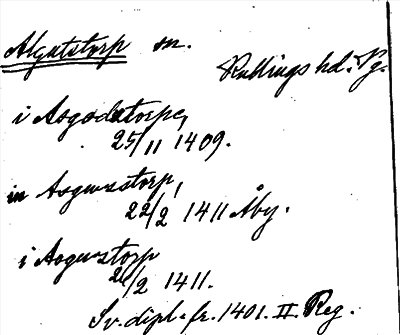 Algutstorp sn.
Kullings hd. Vg.
i Asgodztorpe,
25/11 1409.
in Asguzstorp,
22/2 1411 Åby.
i Asguzstorp
26/2 1411.
Sv. dipl. fr. 1401. II. Reg.